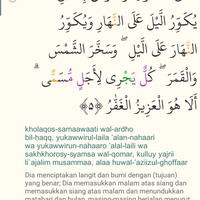 يُكَوِّرُ الَّيْلَ عَلَى النَّهَارِ وَيُكَوِّرُ
النَّهَارَ عَلَى الَّيْلِ ۖ وَسَخَّرَ الشَّمْسَ
وَالْقَمَرَ ۖ كُلٌّ يَجْرِى لِأَجَلٍ مُّسَمًّى ۗ
أَلَا هُوَ الْعَزِيزُ الْغَفَّٰرُ ﴿٥﴾
kholaqos-samaawaati wal-ardho
bil-ḥaqq, yukawwirul-laila 'alan-nahaari
wa yukawwirun-nahaaro 'alal-laili wa
sakhkhorosy-syamsa wal-qomar, kulluy yajrii
li`ajalim musammaa, alaa huwal-'aziizul-ghoffaar
Dia menciptakan langit dan bumi dengan (tujuan)
yang benar; Dia memasukkan malam atas siang dan
memasukkan siang atas malam dan menundukkan
matahari dan bulan, masing-masing berjalan menurut